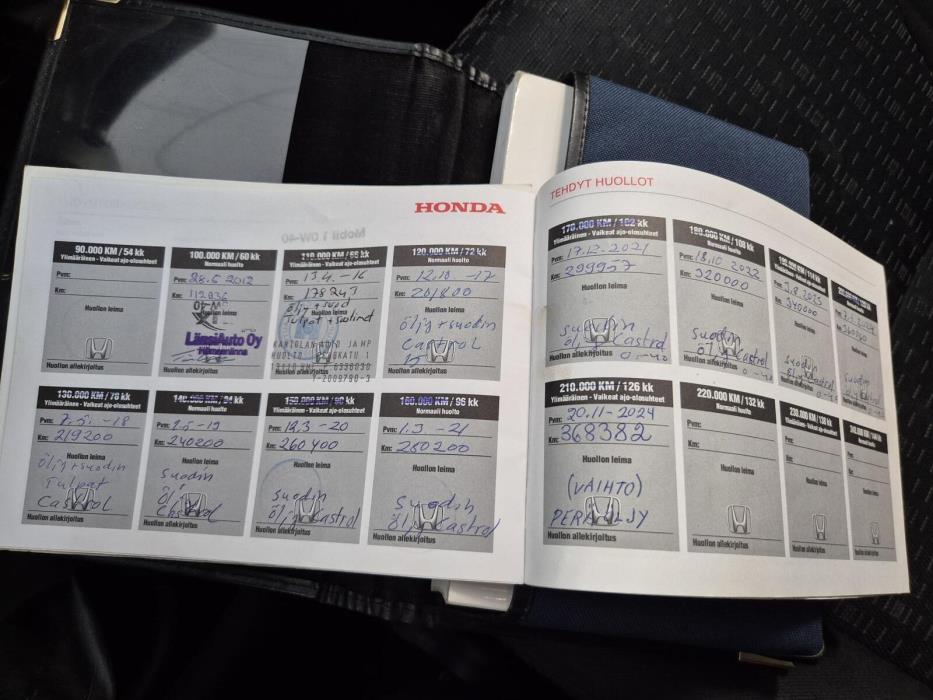 HONDA
Mobil 1 0W-40
90.000 KM / 54 kk
Ylimääräinen - Vaikeat ajo-olosuhteet
Pvm:
Km:
Huollon leima
Huollon allekirjoitus
100.000 KM / 60 kk
Normaali huolto
Pvm: 28.5 2012
Km: 112036
Huollon leima
LänsiAuto Oy
Hämeenlinna
110.000 KM / 66 kk
Ylimääräinen - Vaikeat ajo-olosuhteet
Pvm: 13.4. -16
Km: 178247
öljy + suod
Tulpat + suotimet
120.000 KM / 72 kk
Normaali huolto
Pvm: 12.10 -17
Km: 201800
Huollon leima
öljy + suodin
Castrol
Huollon allekirjoitus
130.000 KM / 78 kk
Ylimääräinen - Vaikeat ajo-olosuhteet
Pvm: 7.5. -18
Km: 219200
Huollon leima
öljy + suodin
Tulpat
Castrol
Huollon allekirjoitus
Normaali huolto
Pvm:
Km: 240200
Huollon leima
suodin
öljy
Castrol
Huollon allekirjoitus
150.000 KM / 90 kk
Ylimääräinen - Vaikeat ajo-olosuhteet
Pvm: 18.3 -20
Km: 260400
Huollon leima
suodin
öljy Castrol
Huollon allekirjoitus
160.000 KM / 96 kk
Normaali huolto
Pvm: 1.3 -21
Km: 280200
Huollon leima
Suodin
öljy Castrol
Huollon allekirjoitus
TEHDYT HUOLLOT
170.000 KM / 102 kk
Ylimääräinen - Vaikeat ajo-olosuhteet
Pvm: 17.12.2021
Km: 299957
Huollon leima
suodin
öljy Castrol
Huollon allekirjoitus 0-40
180.000 KM / 108 kk
Normaali huolto
Pvm: 18.10 2022
Km: 320000
Huollon leima
suodin
öljy Castrol
Huollon allekirjoitus
190.000 KM / 114 kk
Ylimääräinen - Vaikeat ajo-olosuhteet
Km: 340000
Huollon leima
suodin
Castrol
Huollon allekirjoitus
Huollon leima
suodin
210.000 KM / 126 kk
Ylimääräinen - Vaikeat ajo-olosuhteet
Pvm: 20.11-2024
Km: 368382
Huollon leima
(VAIHTO)
PERÄ ÖLJY
Huollon allekirjoitus
220.000 KM / 132 kk
Normaali huolto
Pvm:
Km:
Huollon leima
Huollon allekirjoitus
230.000 KM / 138 kk
Ylimääräinen - Vaikeat ajo-olosuhteet
Pvm:
Km:
Huollon leima
Huollon allekirjoitus
240.000 KM / 144 kk
Normaali huolto
Pvm:
Km:
Huollon leima
Huollon allekirjoitus